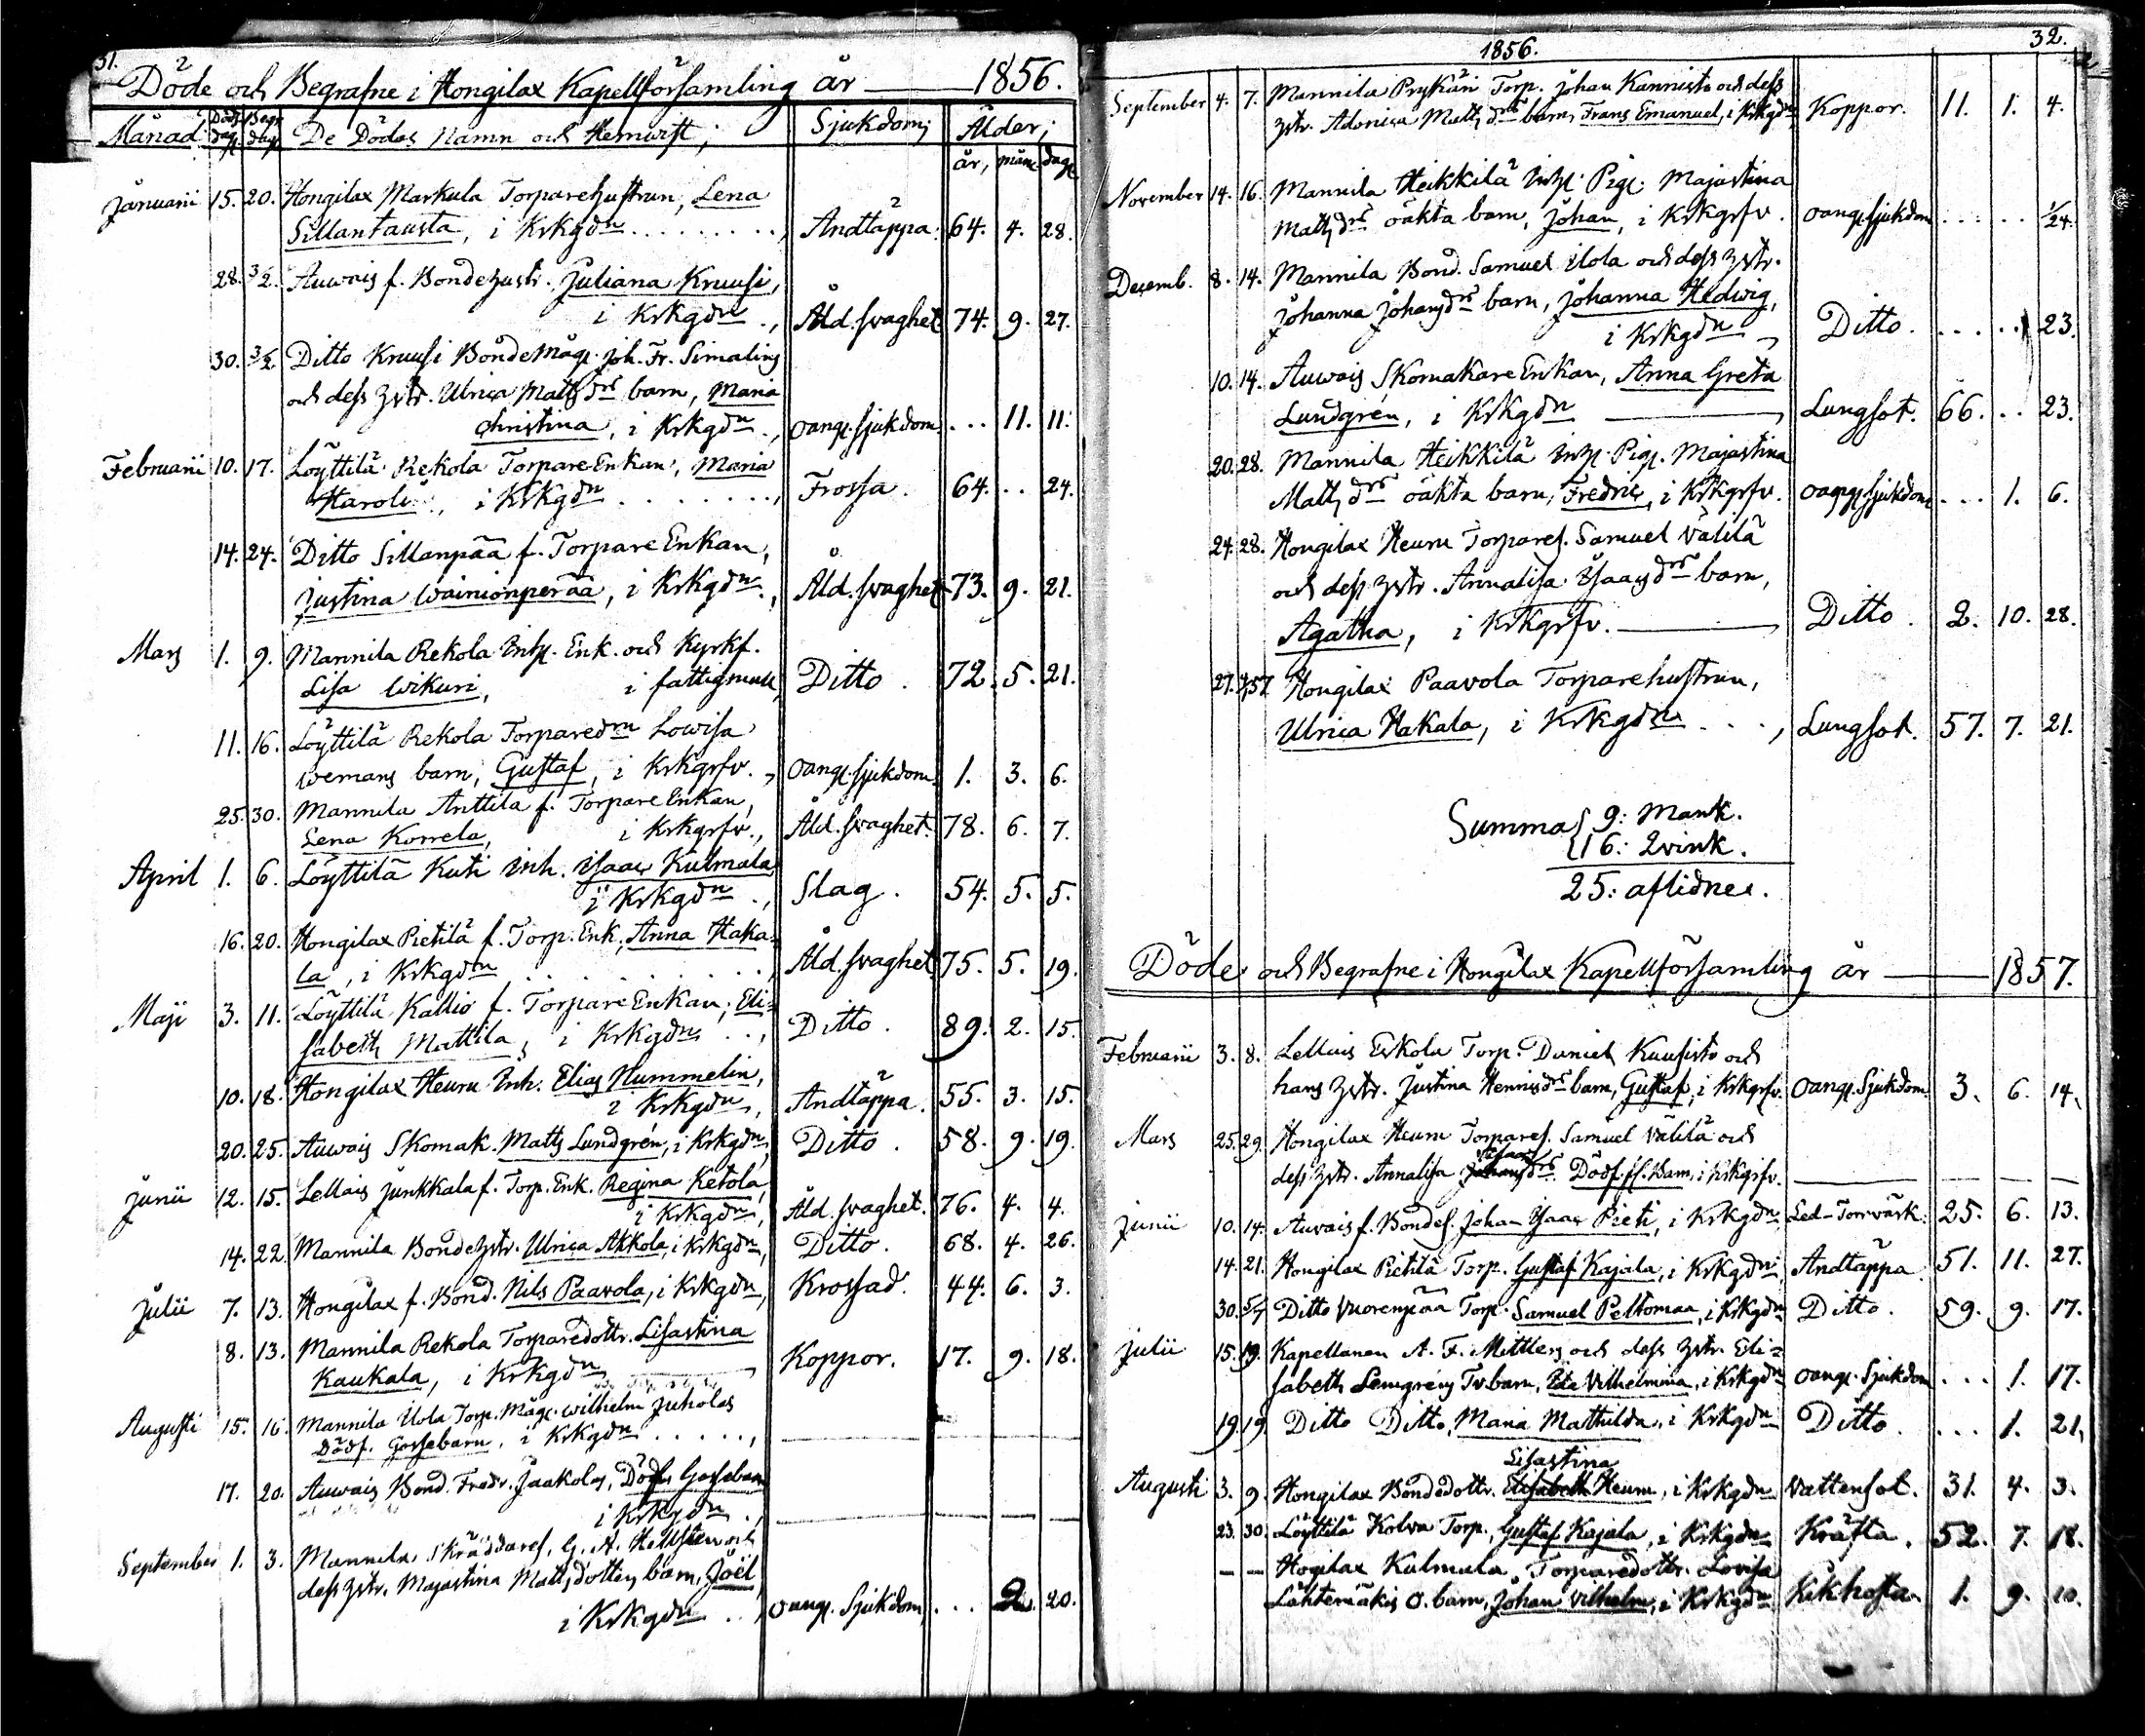 31.
Döde och Begrafne i Hongilax Kapellförsamling år — 1856.
Månad Död. dag. Begr. dag. De Dödas Namn och Hemwist; Sjukdom; Ålder;
år, mån. dag.
Januarii 15. 20. Hongilax Markula Torparehustrun, Lena
Sillantausta, i Krkgdn ........., Andtäppa. 64. 4. 28.
28. 3/2. Auwais f. Bondehustr. Juliana Kruusi,
i Krkgdn ., Åld. svaghet 74. 9. 27.
30. 3/2. Ditto Kruusi Bondemåg. Joh. Fr. Simalins
och dess hstr. Ulrica Mattsdrs barn, Maria
Christina, i Krkgdn ., oang. sjukdom. ... 11. 11.
Februarii 10. 17. Löyttilä Rekola TorpareEnkan, Maria
i Krkgdn ......., Frossa. 64. .. 24.
14. 24. Ditto Sillanpää f. TorpareEnkan,
Justina Wainionperää, i Krkgdn., Åld. svaghet 73. 9. 21.
Mars 1. 9. Mannila Rekola Inh. Enk. och Kyrkf.
Lisa Wikuri, i fattigmull, Ditto. 72. 5. 21.
11. 16. Löyttilä Rekola Torparedrn Lowisa
Wemans barn, Gustaf, i Krkgrfv., Oang. sjukdom. 1. 3. 6.
25. 30. Mannila Anttila f. TorpareEnkan,
Lena Korrela, i Krkgrfv., Åld. svaghet. 78. 6. 7.
April 1. 6. Löyttilä Kuti Inh. Isaac Kulmala
i Krkgdn ., Slag. 54. 5. 5.
16. 20. Hongilax Pietilä f. Torp. Enk. Anna Haka-
la, i Krkgdn .........., Åld. svaghet 75. 5. 19.
Maji 3. 11. Löyttilä Kallio f. TorpareEnkan, Eli-
sabeth Mattila, i Krkgdn .., Ditto. 89. 2. 15.
10. 18. Hongilax Heuru Inh. Elias Nummelin,
i Krkgdn, Andtäppa. 55. 3. 15.
20. 25. Auwais Skomak. Matts Lundgrén, i Krkgdn, Ditto. 58. 9. 19.
Junii 12. 15. Lellais Junkkala f. Torp. Enk. Regina Ketola,
i Krkgdn, Åld. svaghet. 76. 4. 4.
14. 22. Mannila Bondehstr. Ulrica Akkola, i Krkgdn, Ditto. 68. 4. 26.
Julii 7. 13. Hongilax f. Bond. Nils Paavola, i Krkgdn, Krossad. 44. 6. 3.
8. 13. Mannila Rekola Torparedottr. Lisastina
Kaukala, i Krkgdn —, Koppor. 17. 9. 18.
Augusti 15. 16. Mannila Ilola Torp. Måg. Wilhelm Juholas
Dödf. Gossebarn, i Krkgdn .....,
17. 20. Auwais Bond. Fredr. Jaakolas, Dödf. Gossebarn
i Krkgdn .,
September 1. 3. Mannila, Skräddares. G. A. Hellsten och
dess hstr. Majastina Mattsdotters barn, Joël,
i Krkgdn .., oang. Sjukdom, ... 2. 20.
1856. 32.
September 4. 7. Mannila Prykäri Torp. Johan Kannisto och dess
hstr. Adonica Mattsdrs barn, Frans Emanuel, i Krkgdn, Koppor. 11. 1. 4.
November 14. 16. Mannila Heikkilä Inh. Pig. Majastina
Mattsdrs oäkta barn, Johan, i Krkgrfv. oang. sjukdom ..... 1/24.
Decemb. 8. 14. Mannila Bond. Samuel Ilola och dess hstr.
Johanna Johansdrs barn, Johanna Hedwig,
i Krkgdn, Ditto. ..... 23.
10. 14. Auwais SkomakareEnkan, Anna Greta
Lundgrén, i Krkgdn —, Lungsot. 66. .. 23.
20. 28. Mannila Heikkilä Inh. Pig. Majastina
Mattsdrs oäkta barn, Fredric, i Krkgrfv. oang. sjukdom ... 1. 6.
24. 28. Hongilax Heuru Torpares. Samuel Välilä
och dess hstr. Annalisa Isaacsdrs barn,
Agatha, i Krkgrfv. —, Ditto. 2. 10. 28.
27. Hongilax Paavola Torparehustrun,
Ulrica Hakala, i Krkgdn ..., Lungsot. 57. 7. 21.
Summa { 9: Mank.
16: Qvink.
25: aflidne.
Döde och Begrafne i Hongilax Kapellförsamling år — 1857.
Februarii 3. 8. Lellais Eskola Torp. Daniel Kuusisto och
hans hstr. Justina Henricsdrs barn, Gustaf, i Krkgrfv. Oang. Sjukdom. 3. 6. 14.
Mars 25. 29. Hongilax Heuru Torpares. Samuel Välilä och
Isaacs
dess hstr. Annalisa Johansdrs. Dödf. fl. Barn, i Krkgrfv.
Junii 10. 14. Auvais f. Bondes. Johan Isaac Pieti, i Krkgdn Led-Torrvärk. 25. 6. 13.
14. 21. Hongilax Pietilä Torp. Gustaf Kajala, i Krkgdn Andtäppa 51. 11. 27.
30. 5/7 Ditto Vuorenpää Torp. Samuel Peltomaa, i Krkgdn Ditto. 59. 9. 17.
Julii 15. 19. Kapellanen A. F. Mittlers och dess hstr. Eli-
sabeth Lemgréns Tv. barn, Eda Vilhelmina, i Krkgdn oang. Sjukdom ... 1. 17.
19. 19. Ditto Ditto, Maria Mathilda, i Krkgdn Ditto. ... 1. 21.
Lisastina
Augusti 3. 9. Hongilax Bondedottr. Elisabeth Heuru, i Krkgdn Vattensot. 31. 4. 3.
23. 30. Löyttilä Kolva Torp. Gustaf Kajala, i Krkgdn Kräfta. 52. 7. 18.
— — Hogilax Kulmala Torparedottr. Lovisa
Lähtemäkis O. barn, Johan Vilhelm, i Krkgdn Kikhosta 1. 9. 10.